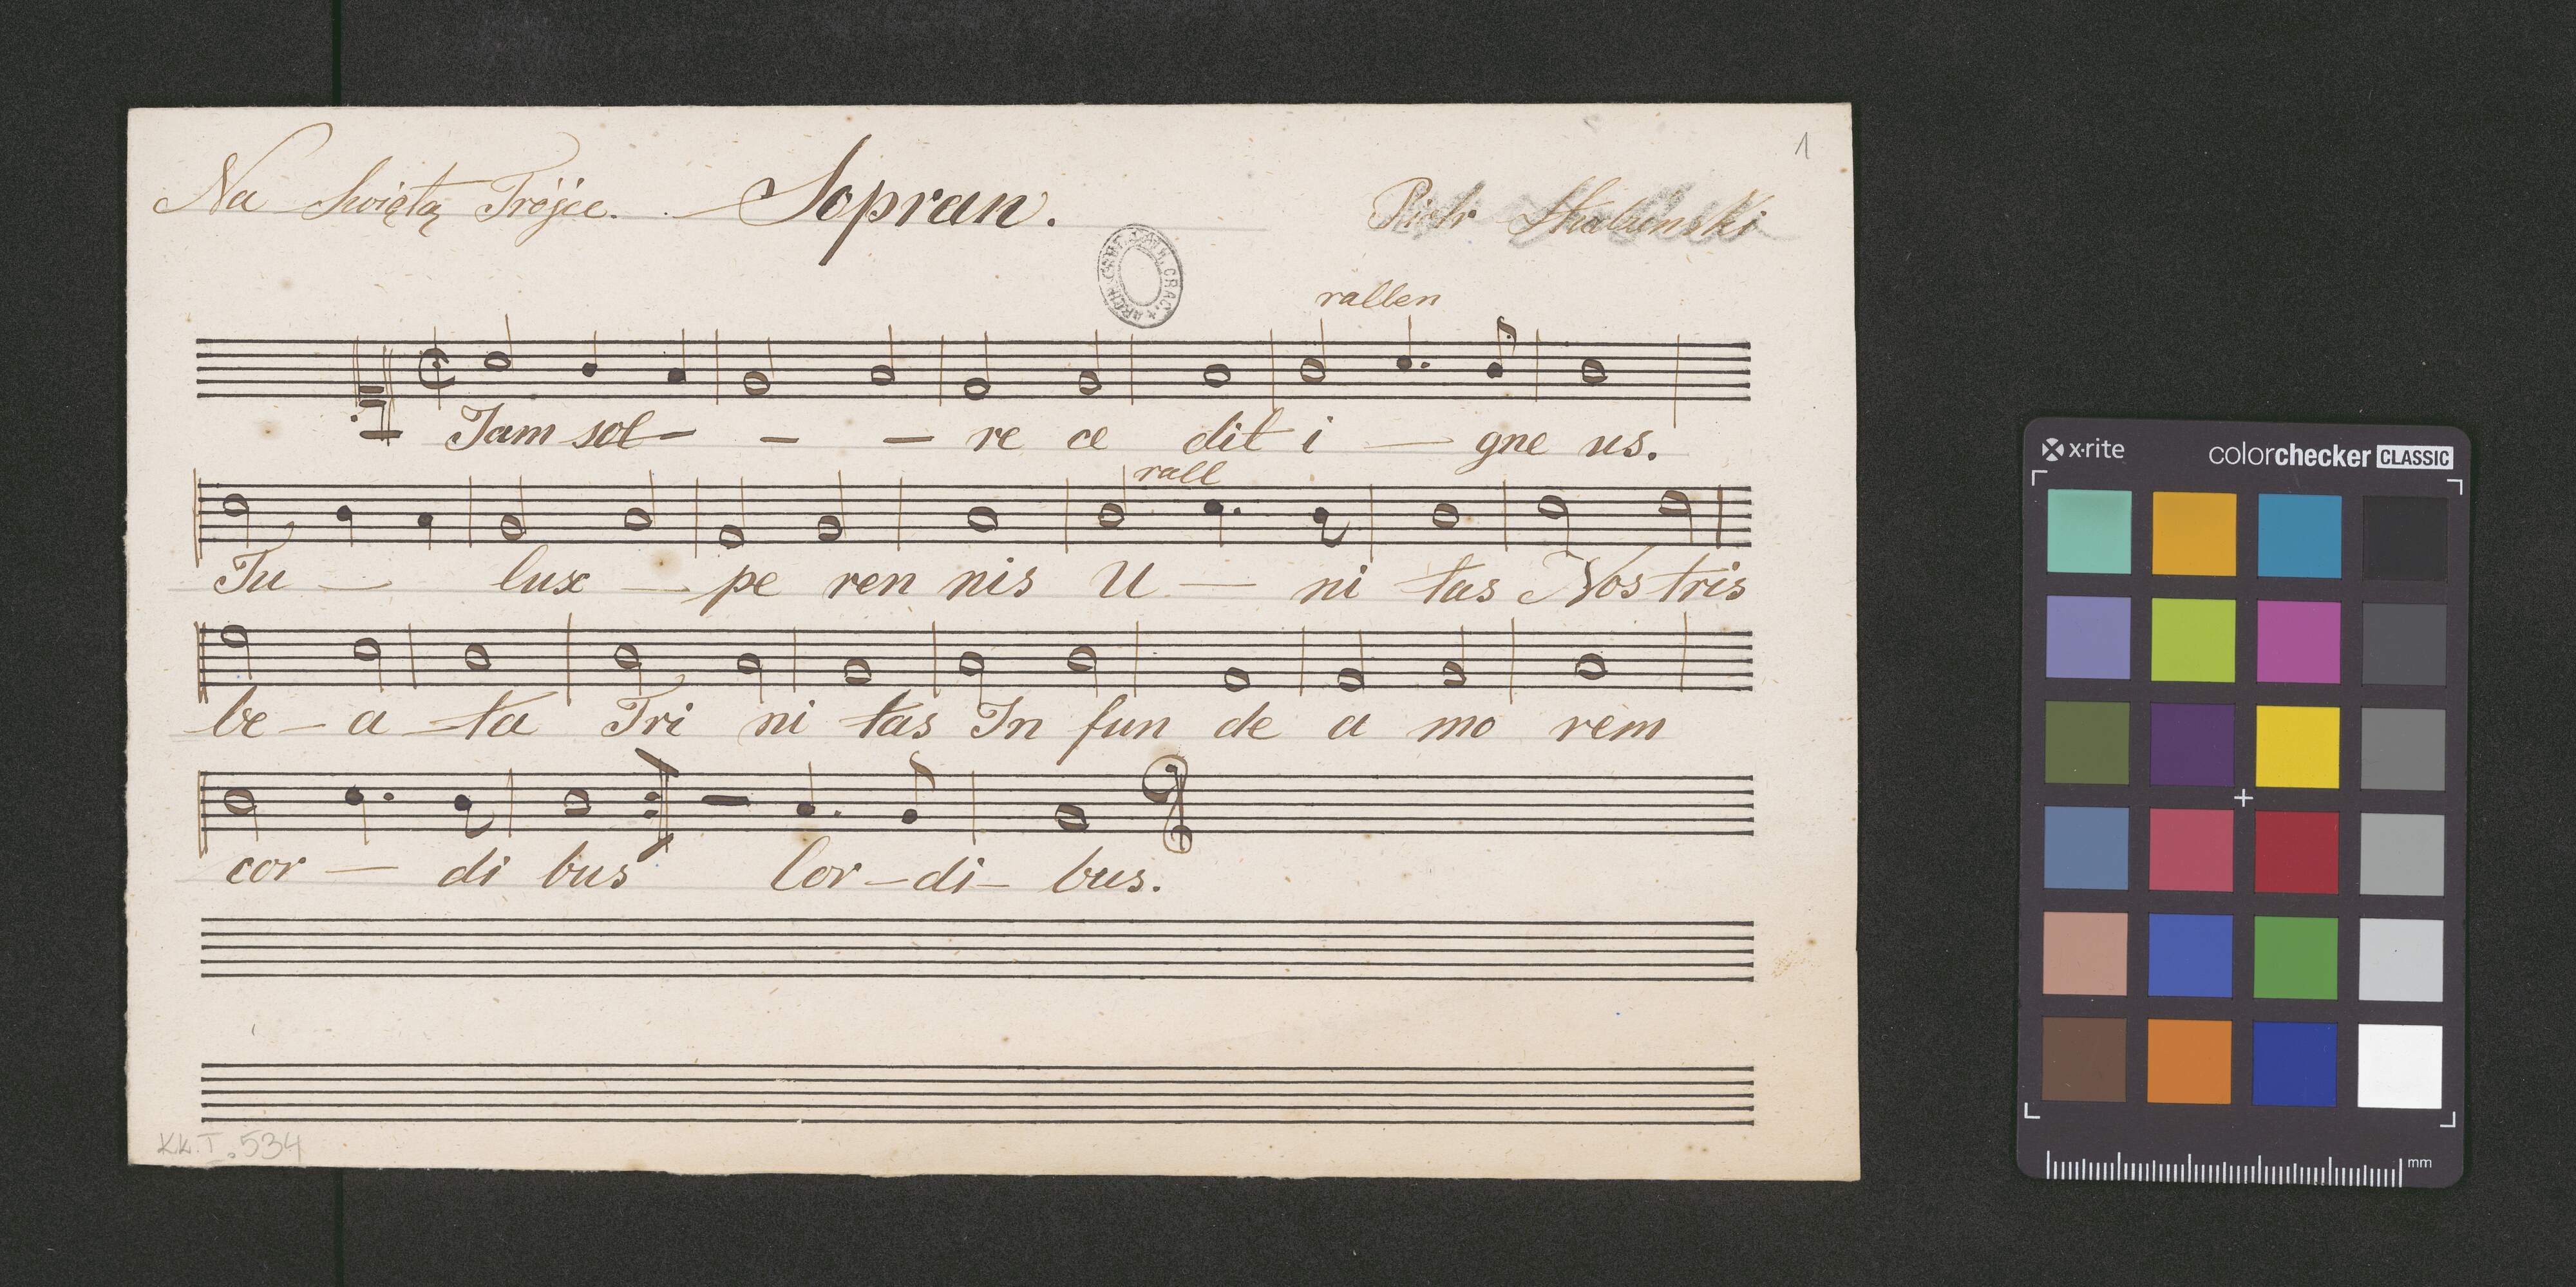 1
Na Świętą Trójce. Sopran. Piotr
rallen
Jam sol - - - re ce dit i - gne us.
rall
Tu - lux - pe ren nis U - ni tas Nos tris
be - a - ta Tri ni tas In fun de a mo rem
cor - di bus Cor - di - bus.
K.k.I.534
x-rite
colorchecker CLASSIC
mm